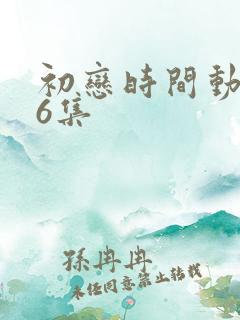 初戀時間動
6集
孫冉冉
未經同意禁止轉載